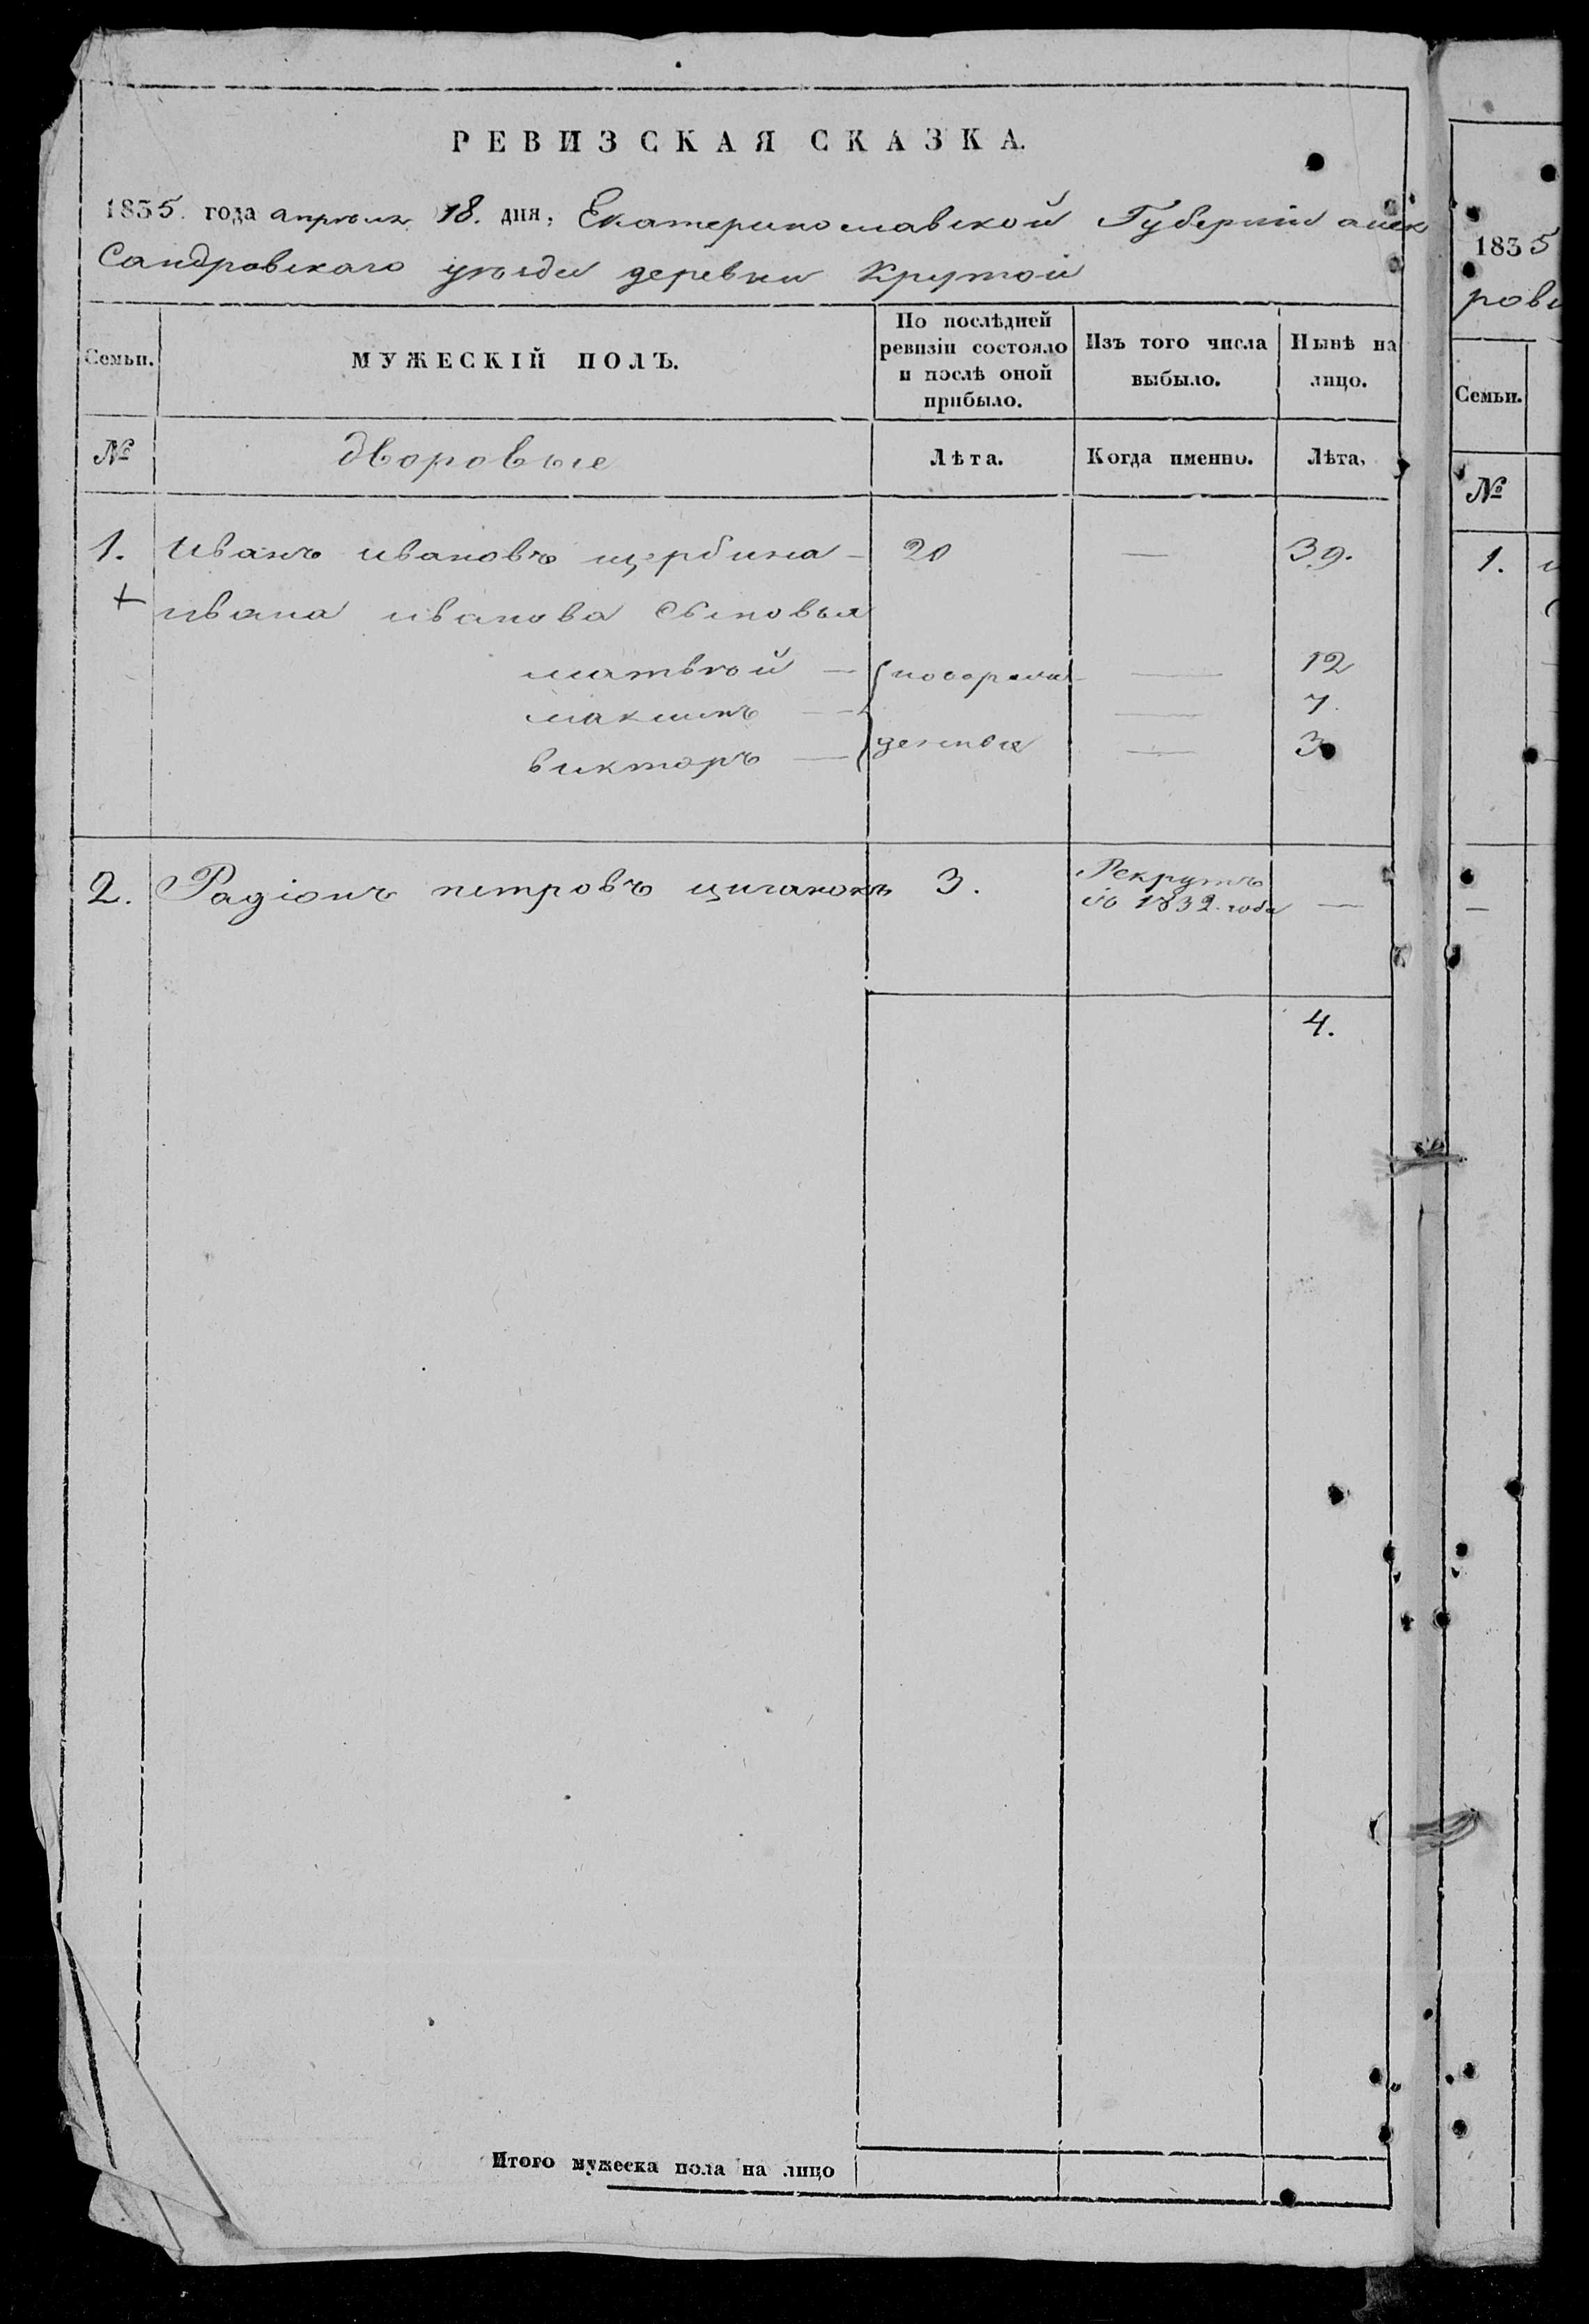 РЕВИЗСКАЯ СКАЗКА.
1835. года апреля 18. дня, Екатеринославской Губернiи алек
Сандровскаго уѣзда деревни Крутой
Семьи.
МУЖЕСКIЙ ПОЛЪ.
По послѣдней ревизiи состояло и послѣ оной прибыло.
Изъ того числа выбыло.
Нынѣ на лицо.
№ дворовые Лѣта. Когда именно. Лѣта,
1. Иванъ ивановъ щербина — 20 — 39.
+ ивана иванова Сыновья
матвѣй — — 12
максимъ — — 7.
викторъ — — 3
2. Радiонъ петровъ циганокъ 3. Рекрутъ
съ 1832. года —
4.
Итого мужеска пола на лицо
1835
ров
Семьи.
№
1.